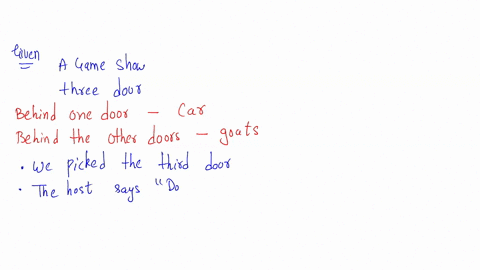 Given
A Game Show
three door
Behind one door - Car
Behind the other doors - goats
• We picked the third door
• The host says "Do